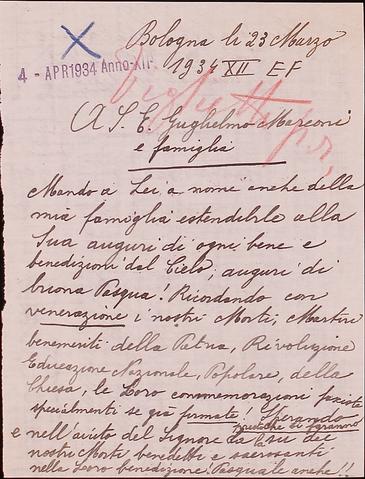 Bologna li 23 Marzo
4 - APR 1934 Anno XII
1934 XII EF
A S. E. Guglielmo Marconi
e famiglia
Mando a Lei a nome anche della
mia famiglia estendibile alla
Sua auguri di ogni bene e
benedizioni dal Cielo; auguri di
buona Pasqua! Ricordando con
venerazione i nostri Morti, Martiri
benemeriti della Patria, Rivoluzione
Educazione Nazionale, Popolare, della
Chiesa, le Loro commemorazioni
specialmenti se già firmate! Sperando
e nell'aiuto del Signore da su dei
nostri Morti benedetti e sacrosanti
nella Loro benedizione! Pasquale anche!!